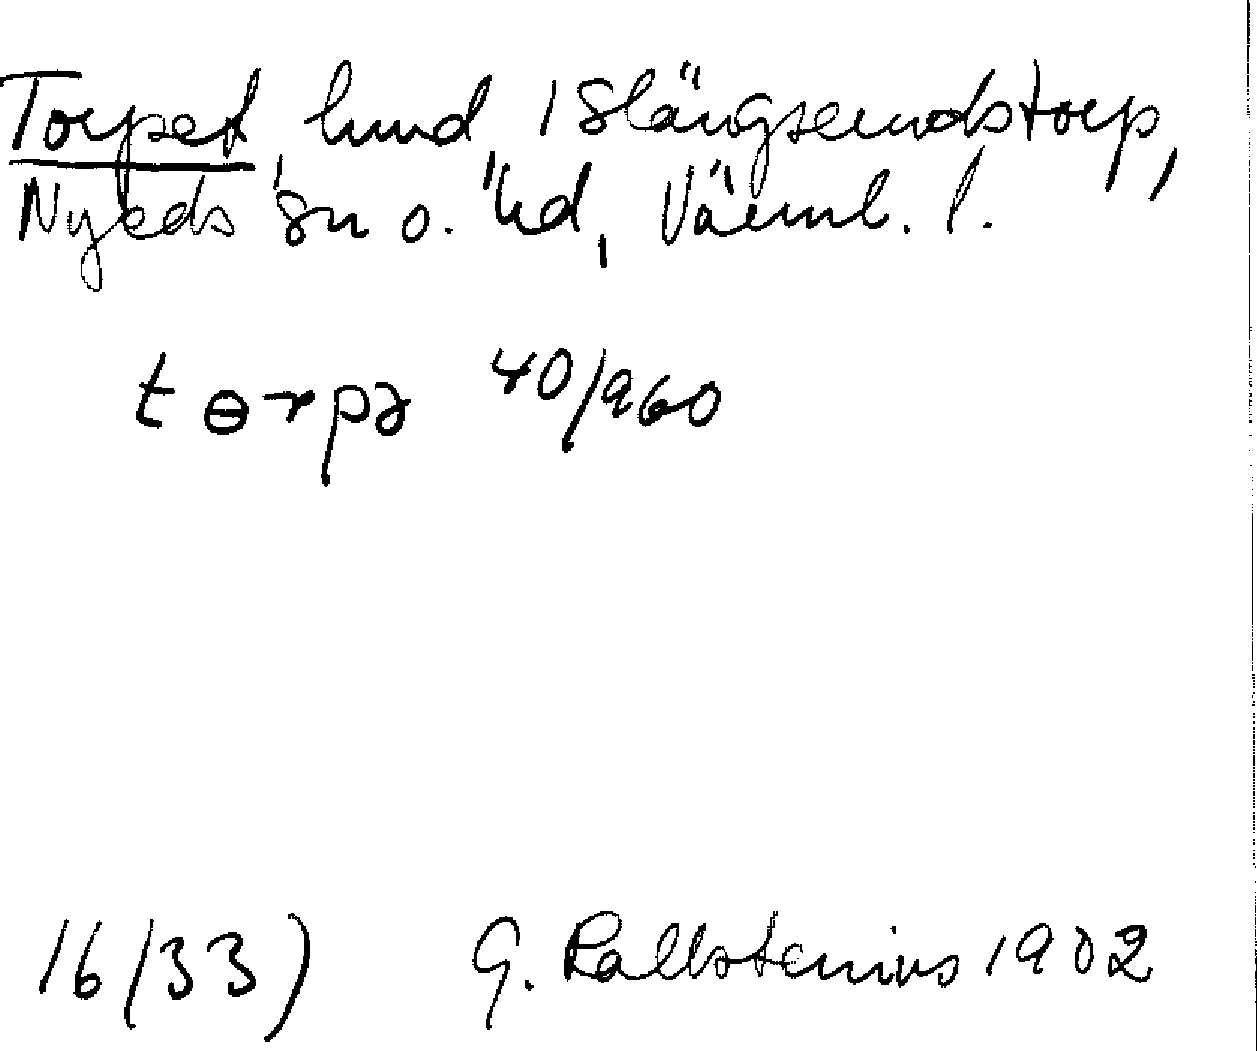 Torpet, lund, 1 Slängserudstorp,
Nyeds sn o. hd, Värml. l.
tɵrpə 40/960
16(33) G. Kallstenius 1902